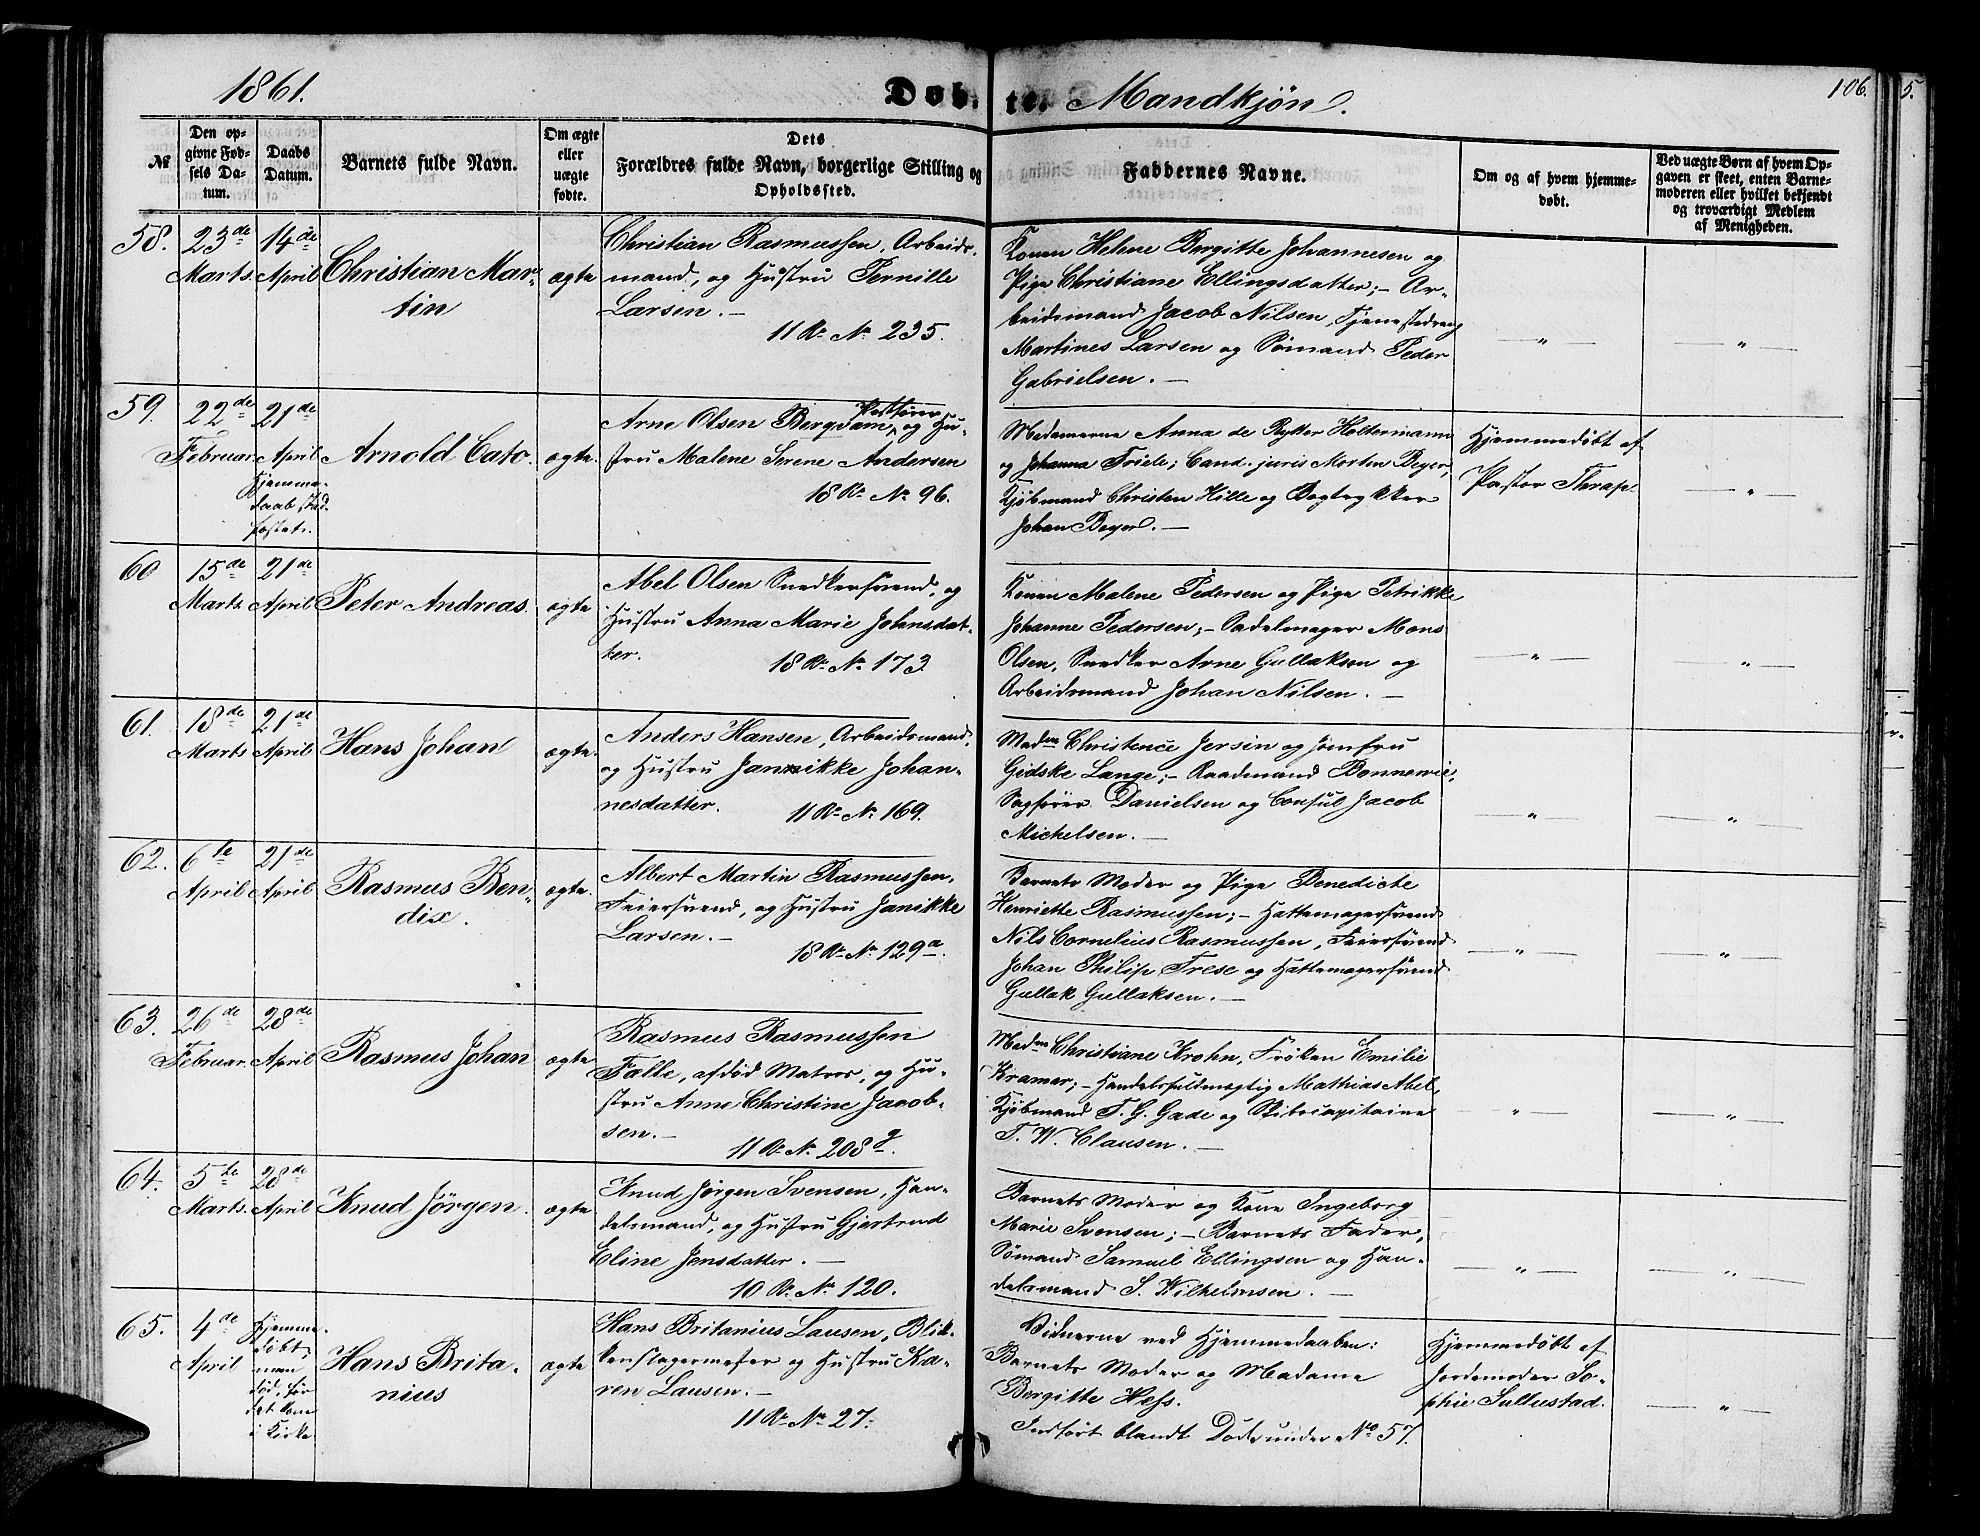 1861.
Døb-te. Mandkjøn.
106.
5.
№
Den op-
givne Fød-
sels Da-
tum.
Daabs
Datum.
Barnets fulde Navn.
Om ægte
eller
uægte
fødte.
Dets
Forældres fulde Navn, borgerlige Stilling og
Opholdssted.
Faddernes Navne.
Om og af hvem hjemme-
døbt.
Ved uægte Børn af hvem Op-
gaven er skeet, enten Barne-
moderen eller hvilket bekjendt
og troværdigt Medlem
af Menigheden.
58.
23de
Marts.
14de
April
Christian Mar-
tin
ægte
Christian Rasmussen, Arbeids-
mand, og Hustru Pernille
Larsen.
11 R. N. 235.
Konen Helene Bergitte Johannesen og
Pige Christiane Ellingsdatter; - Ar-
beidsmand Jacob Nilsen, Tjenestedreng
Martines Larsen og Sømand Peder
Gabrielsen.
59.
22de
Februar.
21de
April
Hjemme-
daab stad-
fæstet.
Arnold Cato.
ægte.
Arne Olsen Bergdam, Postfører, og Hu-
stru Malene Serene Andersen
18 R. N. 96.
Madamerne Anna de Rytter Holtermann
og Johanna Friele; Cand. juris Morten Beyer,
Kjøbmand Christen Hille og Bogtrykker
Johan Beyer.
Hjemmedøbt af
Pastor Thrap.
60
15de
Marts.
21de
April
Peter Andreas.
ægte
Abel Olsen Snedkersvend, og
Hustru Anna Marie Johnsdat-
ter.
18 R. N. 173
Konen Malene Pedersen og Pige Petrikke
Johanne Pedersen; - Sadelmager Mons
Olsen, Snedker Arne Gullaksen og
Arbeidsmand Johan Nilsen.
61.
18de
Marts
21de
April
Hans Johan
ægte.
Anders Hansen, Arbeidsmand,
og Hustru Jannikke Johan-
nesdatter.
11 R. N. 169.
Madme Christence Jersin og Jomfru
Gidske Lange; - Raadmand Bonnevie,
Sagfører Danielsen og Consul Jacob
Michelsen.
62.
6te
April
21de
April
Rasmus Ben-
dix.
ægte.
Albert Martin Rasmussen,
Feiersvend, og Hustru Janikke
Larsen.
18 R. N. 129a.
Barnets Moder og Pige Benedicte
Henriette Rasmussen; - Hattemagersvend
Nils Cornelius Rasmussen, Feiersvend
Johan Philip Frese og Hattemagersvend
Gullak Gullaksen.
63.
26de
Februar.
28de
April
Rasmus Johan
ægte
Rasmus Rasmussen
Falle, afdød Matros, og Hu-
stru Anne Christine Jacob-
sen.
11 R. N. 208 g.
Madme Christiane Krohn, Frøken Emilie
Kramer; - Handelsfuldmægtig Mathias Abel,
Kjøbmand F. G. Gade og Skibscapitaine
T. W. Clausen.
64.
5te
Marts.
28de
April
Knud Jørgen.
ægte
Knud Jørgen Svensen, Han-
delsmand, og Hustru Gjertrud
Eline Jensdatter.
10 R. N. 120.
Barnets Moder og Kone Ingeborg
Marie Svensen; - Barnets Fader,
Sømand Samuel Ellingsen og Han-
delsmand S. Wilhelmsen.
65.
4de
April
Hjemme-
døbt-
men
død, før
det kom
i Kirke
Hans Brita-
nius
ægte
Hans Britanius Lausen, Blik-
kenslagermester og Hustru Ka-
ren Lausen.
11 R. N. 27.
Vidnerne ved Hjemmedaaben:
Barnets Moder og Madame
Bergitte Hess.
Indført blandt Døde under No 57.
Hjemmedøbt af
Jordemoder So-
phie Sullustad.